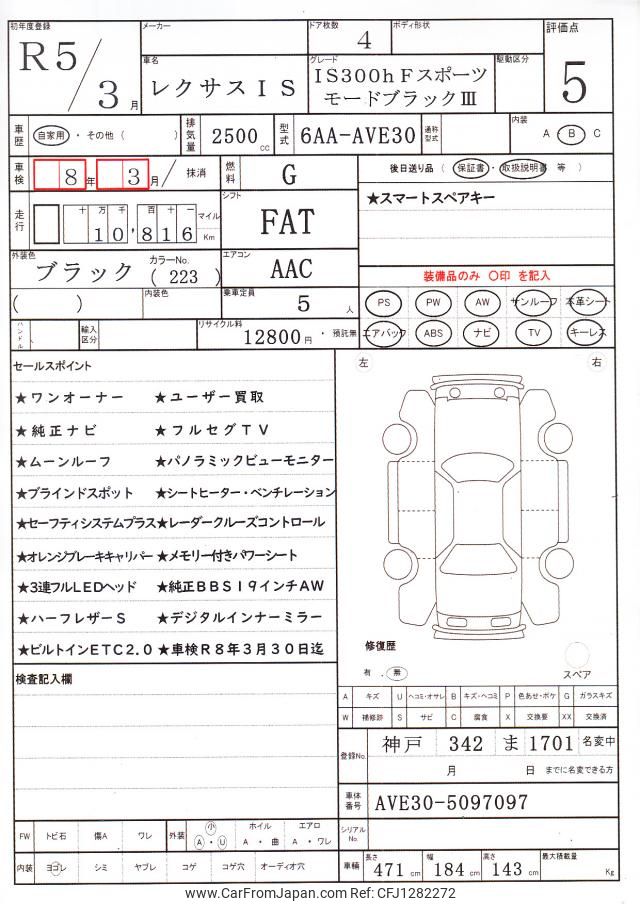 初年度登録 メーカー ドア枚数 ボディ形状 評価点
R5/3月 4 5
車名 グレード 駆動区分
レクサスIS IS300hFスポーツ
モードブラックⅢ
車歴 自家用・その他( ) 排気量 2500cc 型式 6AA-AVE30 通称型式 内装 A・B・C
車検 8年 3月/ 抹消 燃料 G 後日送り品 (保証書・取扱説明書 等)
走行 十 万 千 百 十 一 マイル Km シフト ★スマートスペアキー
10,816 FAT
外装色 カラーNo. エアコン
ブラック (223) AAC 装備品のみ 〇印 を記入
( ) 内装色 乗車定員 5人 PS PW AW サンルーフ 本革シート
ハンドル 輸入区分 リサイクル料 12800円・預託無 エアバック ABS ナビ TV キーレス
セールスポイント 左 右
★ワンオーナー ★ユーザー買取
★純正ナビ ★フルセグTV
★ムーンルーフ ★パノラミックビューモニター
★ブラインドスポット ★シートヒーター・ベンチレーション
★セーフティシステムプラス★レーダークルーズコントロール
★オレンジブレーキキャリパー★メモリー付きパワーシート
★3連フルLEDヘッド ★純正BBS19インチAW
★ハーフレザーS ★デジタルインナーミラー
★ビルトインETC2.0 ★車検R8年3月30日迄
修復歴
有 . 無 スペア
検査記入欄
A キズ U ヘコミ・オサレ B キズ・ヘコミ P 色あせ・ボケ G ガラスキズ
W 補修跡 S サビ C 腐食 X 交換要 XX 交換済
登録No. 神戸 342 ま 1701 名変中
月 日 までに名変できる方
車体番号 AVE30-5097097
シリアルNo.
FW トビ石 傷A ワレ 外装 小 A・U ホイル A・曲 エアロ A・ワレ
内装 ヨゴレ シミ ヤブレ コゲ コゲ穴 オーディオ穴
車輛 長さ 471cm 幅 184cm 高さ 143cm 最大積載量 Kg
www.CarFromJapan.com Ref: CFJ1282272